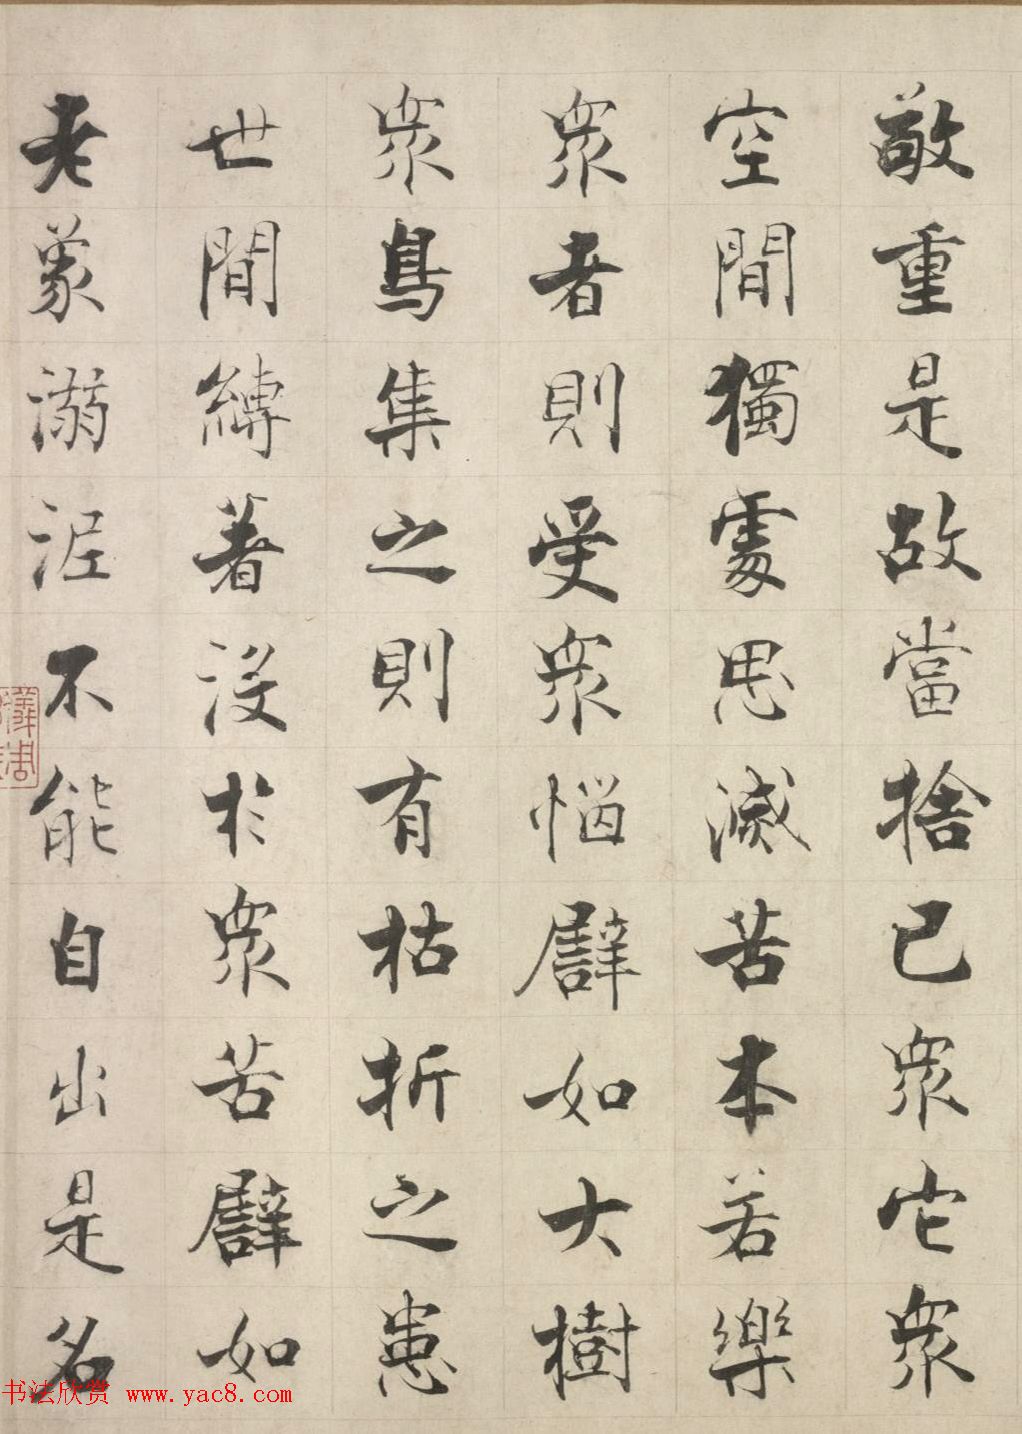 敬重是故當捨己眾它眾
空閒獨處思滅苦本若樂
眾者則受眾惱譬如大樹
眾鳥集之則有枯折之患
世閒縛著沒於眾苦譬如
老象溺泥不能自出是名
书法欣赏 www.yac8.com